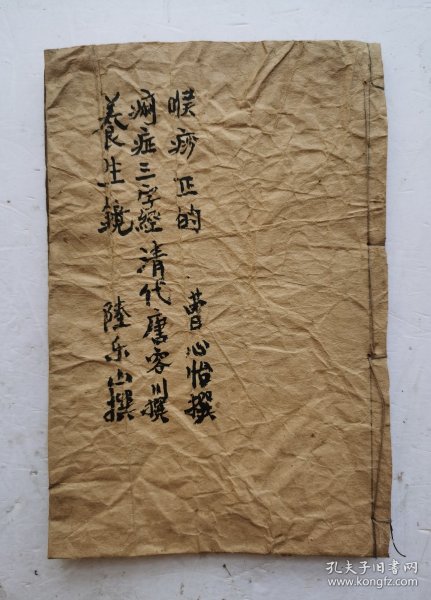 喉痧正的 曹心怡撰
痢症三字經 清代唐容川撰
養生鏡 陸乐山撰
孔夫子旧书网
www.kongfz.com